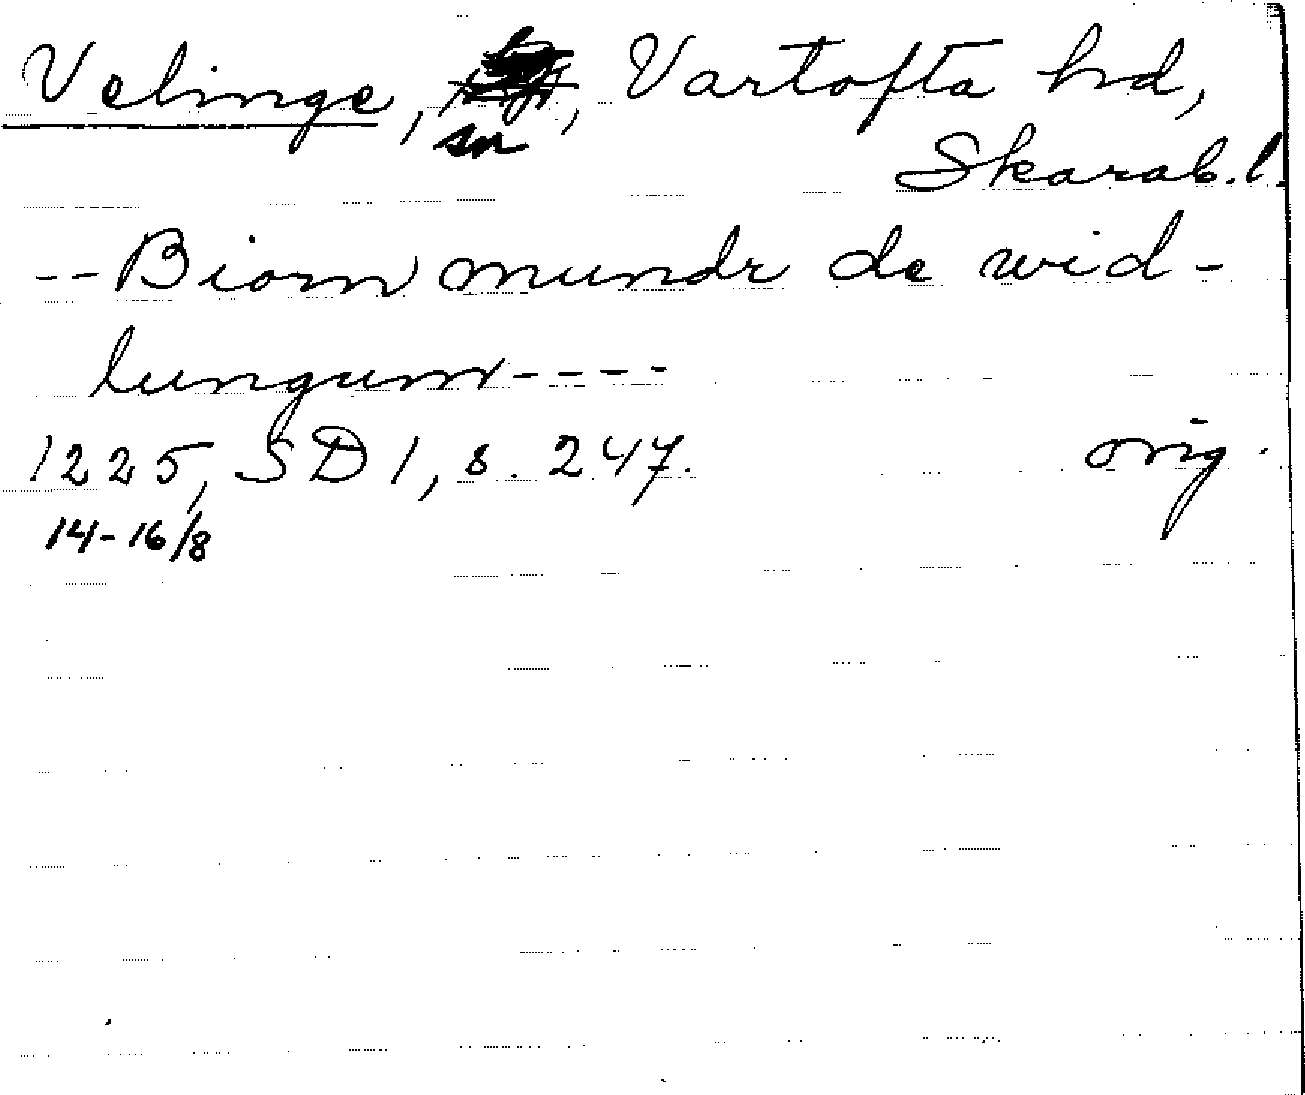 Velinge, sn, Vartofta hd,
Skarab. l.
-- Biorn mundr de wid-
lungum ----
1225, SD 1, s. 247. orig.
14-16/8